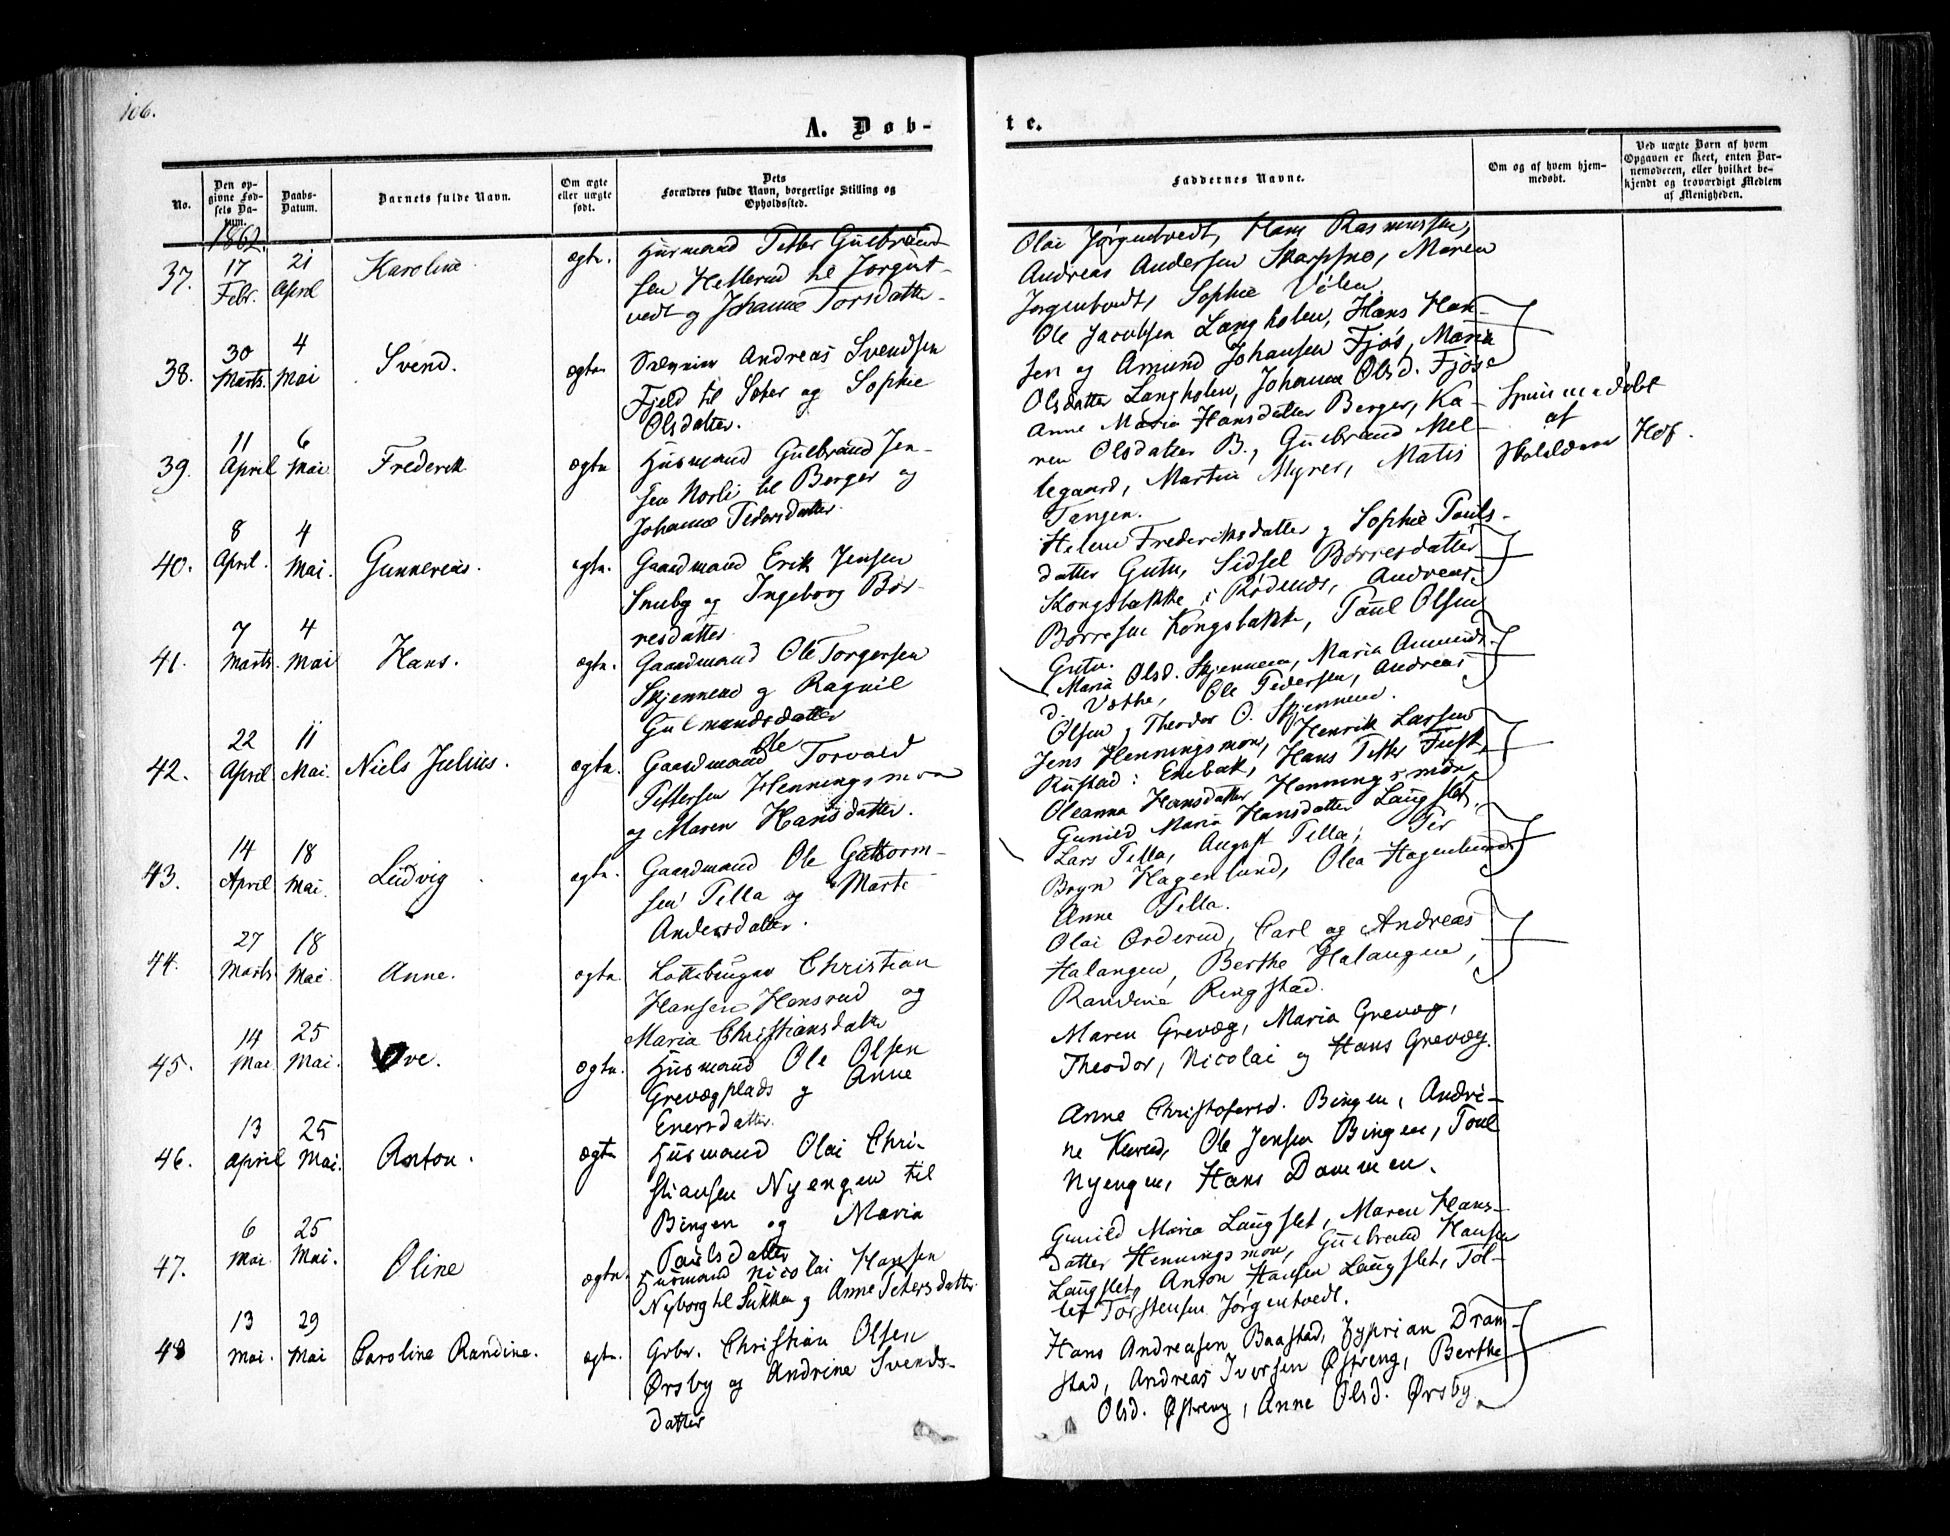 106.
A. Døb-
te.
No.
Den op-
givne Fød-
sels Da-
tum.
Daabs-
Datum.
Barnets fulde Navn.
Om ægte
eller uægte
født.
Dets
Forældres fulde Navn, borgerlige Stilling og
Opholdssted.
Faddernes Navne.
Om og af hvem hjem-
medøbt.
Ved uægte Børn af hvem
Opgaven er skeet, enten Bar-
nemoderen, eller hvilket be-
kjendt og troværdigt Medlem
af Menigheden.
1862.
37. 17 Febr. 21 April Karoline ægte.
Husmand Petter Gulbrand-
sen Hellerud til Jørgent-
vedt og Johanne Torsdatter
Olai Jørgentvedt, Hans Rasmussen,
Andreas Andersen Skarpsno, Maren
Jørgentvedt, Sophie Vølen
38. 30 Marts. 4 Mai Svend. ægte
Andreas Svendsen
Fjeld til Seter og Sophie
Olsdatter.
Ole Jacobsen Langholen, Hans Han-
sen og Amund Johansen Fjøs, Maria
Olsdatter Langholen, Johanne Olsd. Fjøse
39. 11 April 6 Mai Frederik ægte
Husmand Gulbrand Jen-
sen Norli til Berger og
Johanne Pedersdatter.
Anne Maria Hansdatter Berger, Ka-
ren Olsdatter B., Gulbrand Mel-
legaard, Martin Myrer, Matis
Tangen.
af
Hof.
40. 8 April. 4 Mai. Gunnereus. ægte.
Gaardmand Erik Jensen
Snuby og Ingeborg Bør-
resdatter.
Helene Frederiksdatter og Sophie Pouls-
datter Gutu, Sidsel Børresdatter
Kongsbakke i Rødenes, Andreas
Børresen Kongsbakke, Paul Olsen
Gutu.
41. 7 Marts. 4 Mai Hans. ægte.
Gaardmand Ole Torgersen
Skjennem og Ragnil
Gulmandsdatter
Maria Olsd. Skjennem, Maria Amunds-
d. Væthe, Ole Pedersen, Andreas
Olsen, Theodor O. Skjennem.
42. 22 April 11 Mai. Niels Julius. ægte.
Ole
Gaardmand Torvald
Pettersen Henningsmoen
og Maren Hansdatter.
Jens Henningsmoen, Henrik Larsen
Rustad i Enebak, Hans Petter Fusk,
Oleanna Hansdatter Henningsmoen,
Gunild Maria Hansdatter Laugslet.
43. 14 April 18 Mai. Ludvig ægte.
Gaardmand Ole Guttorm-
sen Tella og Marte
Andersdatter.
Lars Tella, August Tella, Per
Bryn Hagenlund, Olea Hagenlund,
Anne Tella.
44. 27 Marts 18 Mai. Anne. ægte.
Christian
Hansen Hansrud og
Maria Christiansdatter
Olai Orderud, Carl og Andreas
Halangen, Berthe Halangen,
Randine Ringstad.
45. 14 Mai 25 Mai. Ove. ægte.
Husmand Ole Olsen
Grevægplads og Anne
Enersdatter.
Maren Grevæg, Maria Grevæg,
Theodor, Nicolai og Hans Grevæg.
46. 13 April 25 Mai. Anton. ægte
Husmand Olai Chri-
stiansen Nyengen til
Bingen og Maria
Paulsdatter
Anne Christofersd. Bingen, Andri-
ne Ole Jensen Bingen, Poul
Nyengen, Hans Dammen.
47. 6 Mai 25 Mai. Oline ægte.
Husmand Nicolai Hansen
Nyborg til Sukken og Anne Petersdatter
Gunild Maria Laugslet, Maren Hans-
datter Henningsmoen, Gulbrand Hansen
Laugslet, Anton Hansen Laugslet, Tol-
lef Torstensen Jørgentvedt.
48 13 Mai. 29 Mai Caroline Randine. ægte.
Grbr. Christian Olsen
Ørsby og Andrine Svends-
datter
Hans Andreasen Baastad, Zyprian Dram-
stad, Andreas Iversen Østreng, Berthe
Olsd. Østreng, Anne Olsd. Ørsby.